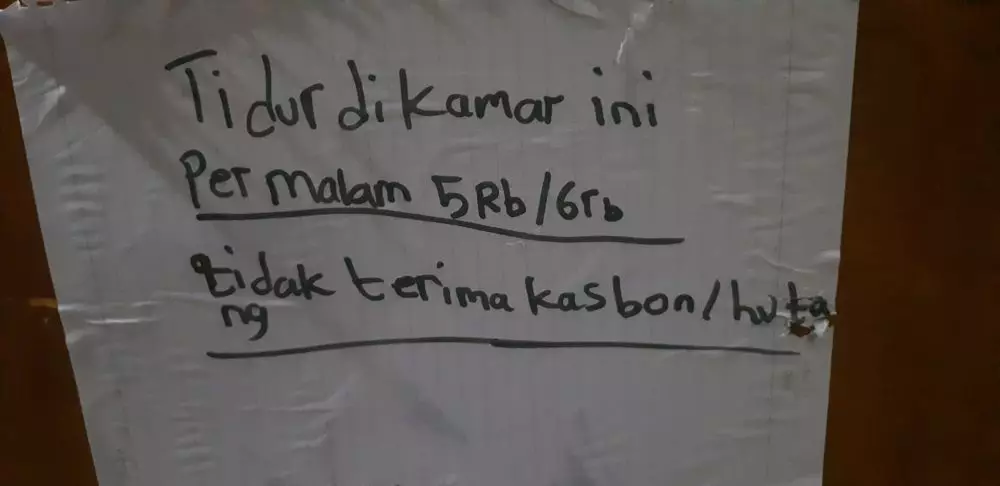 Tidur di kamar ini
Per malam 5Rb/6rb
tidak terima kasbon/huta
ng